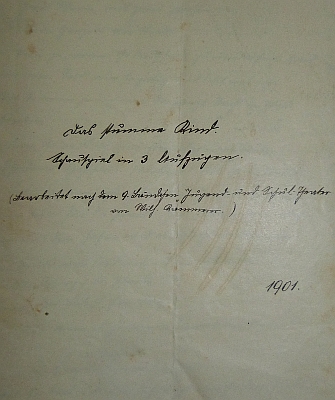 Das stumme Kind.
Schauspiel in 3 Aufzügen.
(Bearbeitet nach dem 9. Bändchen Jugend- und Schul-Theater
von Wilh.
1901.